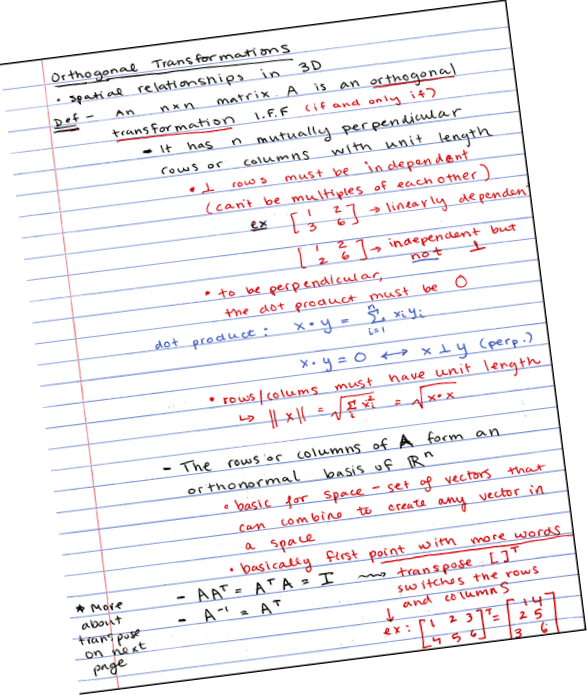 Orthogonal Transformations
• Spatial relationships in 3D
Def - An nxn matrix A is an orthogonal
transformation I.F.F (if and only if)
- It has n mutually perpendicular
rows or columns with unit length
• ⊥ rows must be independent
(can't be multiples of each other)
ex [1 2; 3 6] → linearly dependen
[1 2; 2 6] → independent but
not ⊥
• to be perpendicular,
the dot product must be 0
dot product: x • y = Σ_{i=1}^{n} xᵢyᵢ
x • y = 0 ↔ x ⊥ y (perp.)
• rows/colums must have unit length
↳ ||x|| = √(Σᵢ xᵢ²) = √(x•x)
- The rows or columns of A form an
orthonormal basis of ℝⁿ
• basic for space - set of vectors that
can combine to create any vector in
a space
• basically first point with more words
- AAᵀ = AᵀA = I ⇝ transpose [.]ᵀ
switches the rows
and columns
- A⁻¹ = Aᵀ
↓
ex: [1 2 3; 4 5 6]ᵀ = [1 4; 2 5; 3 6]
* More
about
transpose
on next
page